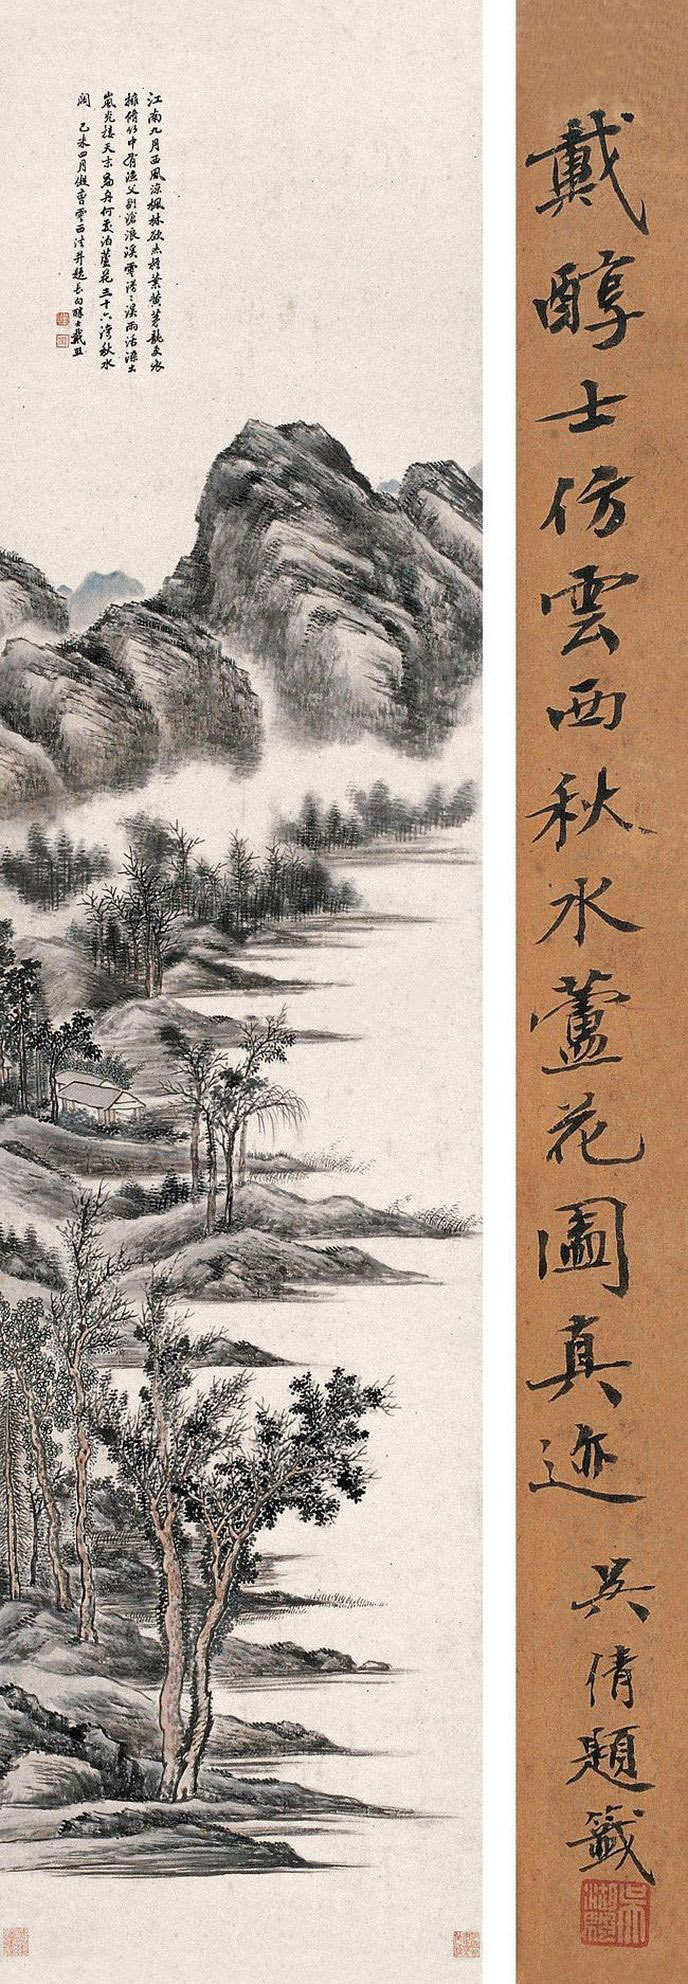 江南九月西風涼楓林欲赤柳葉黃茅龍更衣
擁脩竹中有漁父別滄浪溪雲漠漠溪雨活溼土
嵐光接天末扁舟何處泊蘆花三十六灣秋水
闊 己未四月做曹雲西法并題長白醇士戴熙
戴醇士仿雲西秋水蘆花圖真迹 吳倩題籤